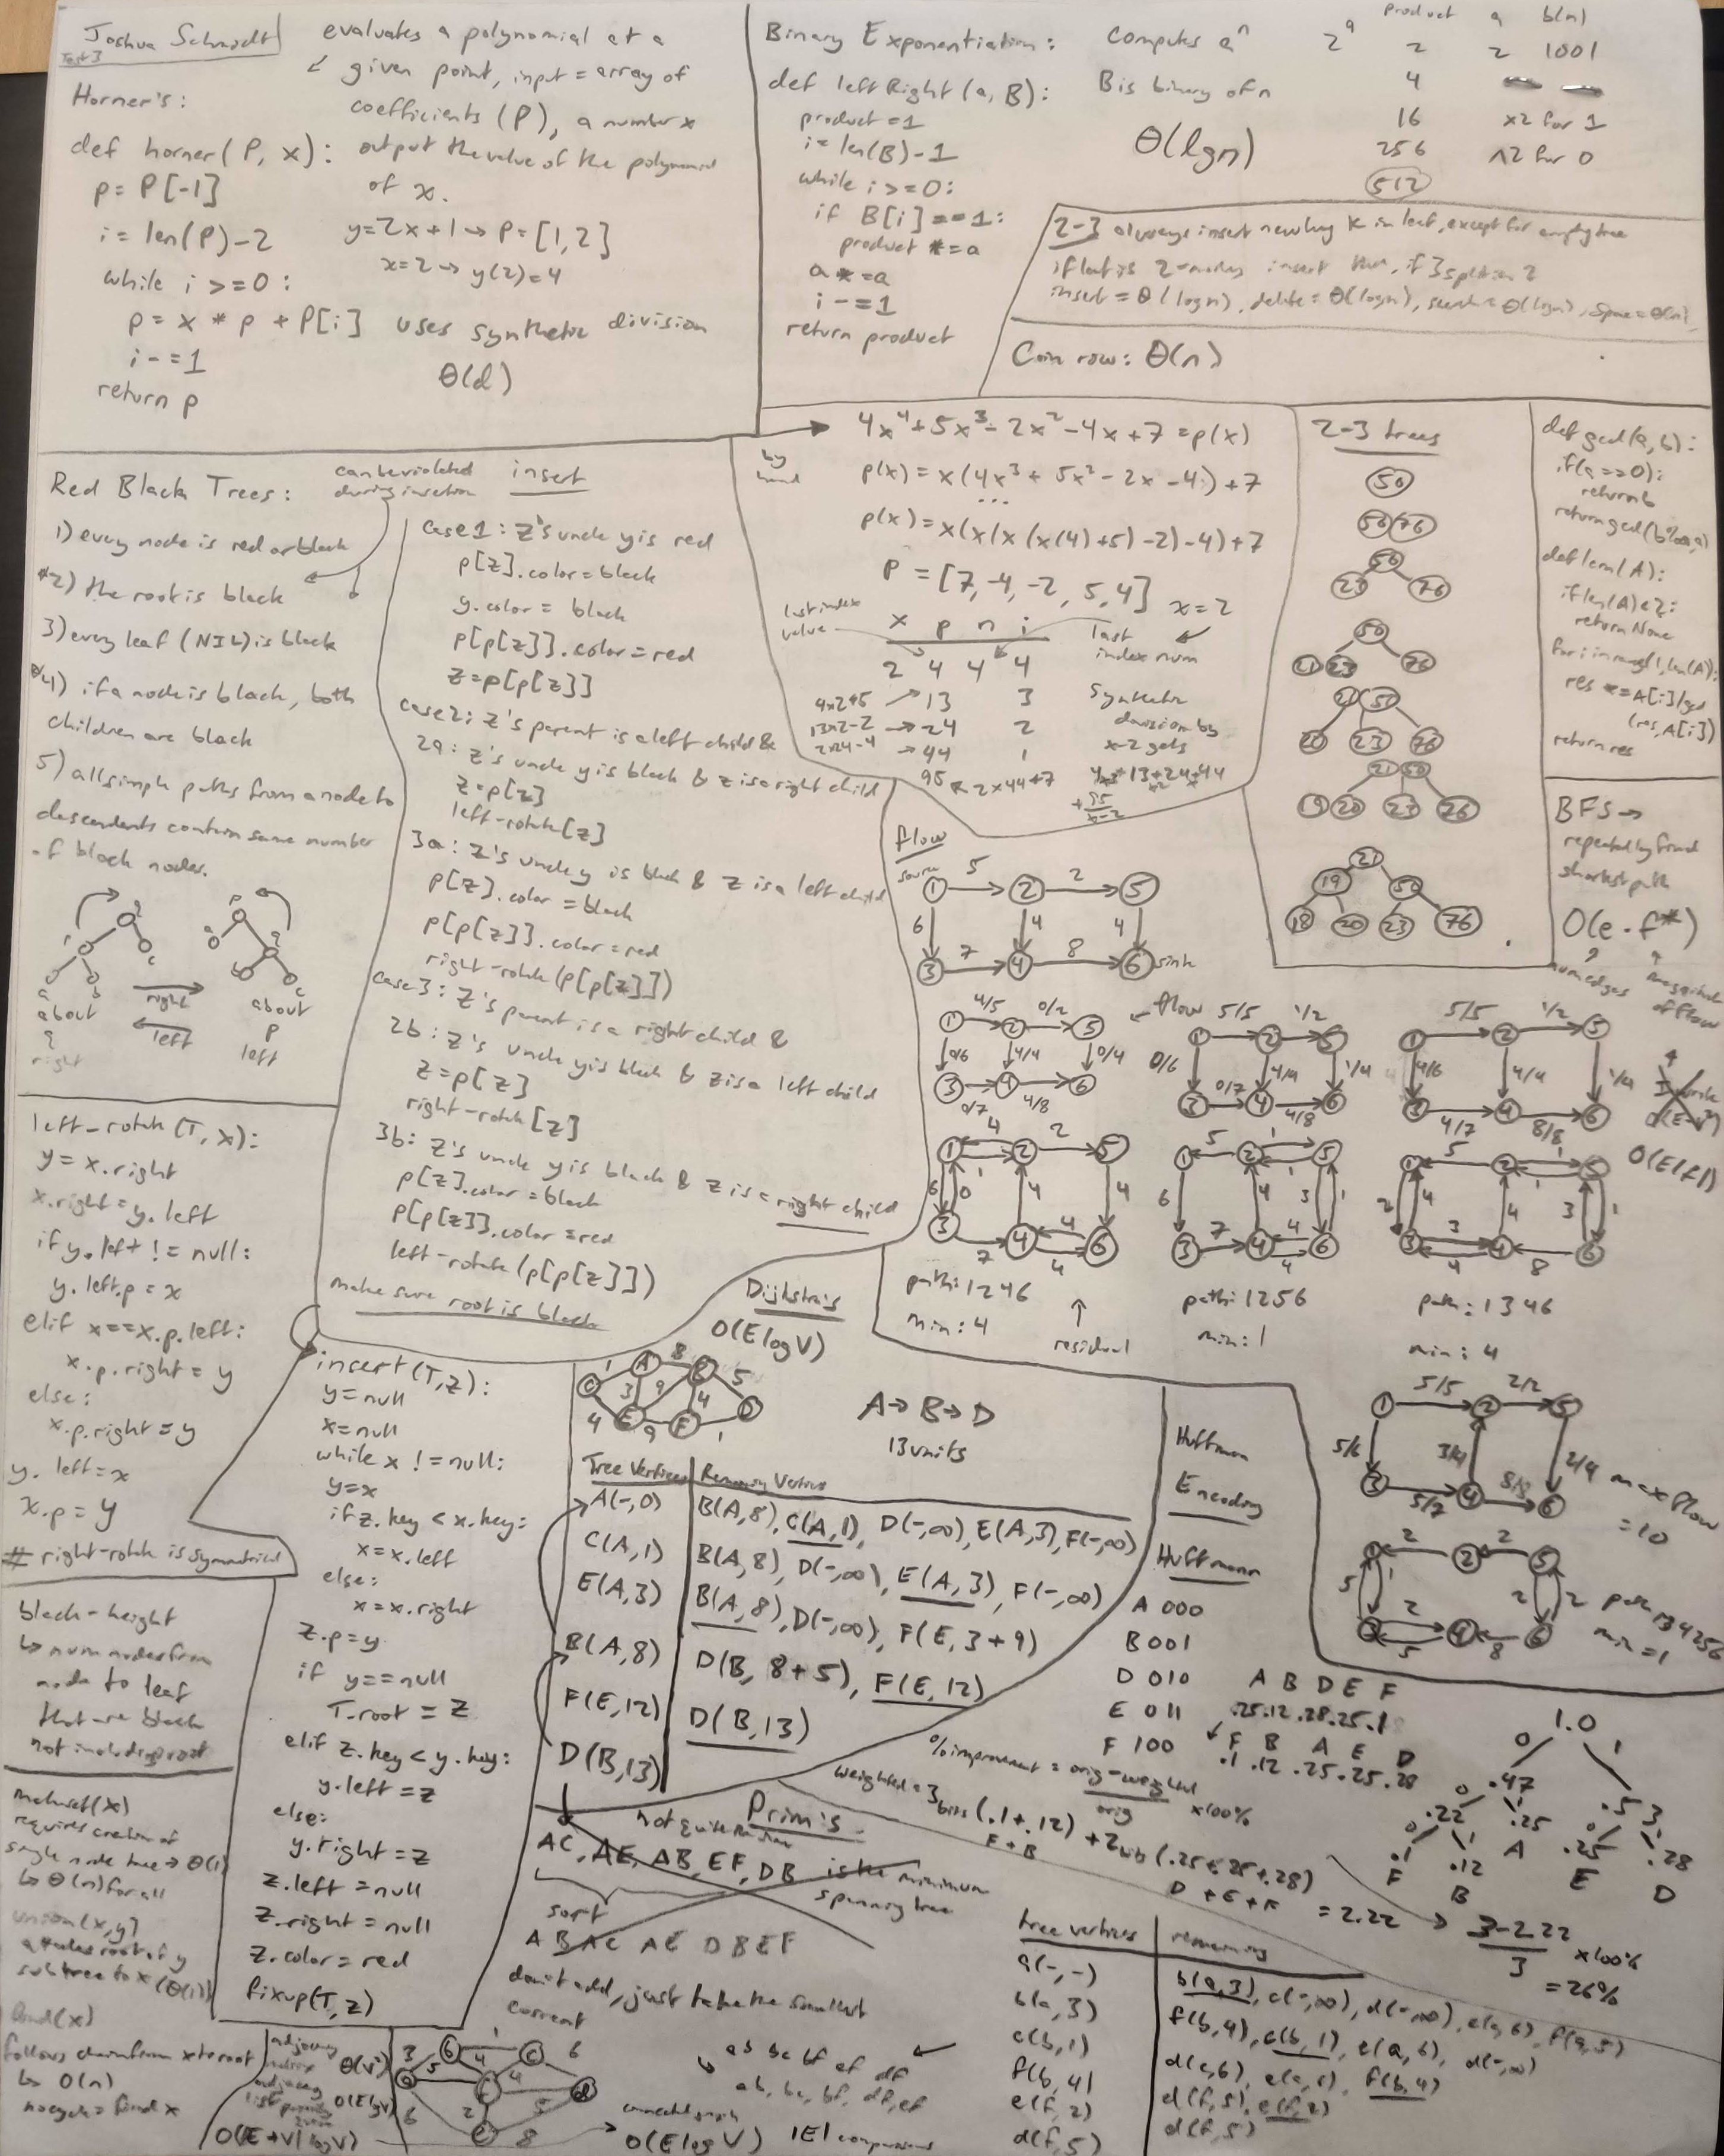 Joshua Schmidt
Test 3
evaluates a polynomial at a
given point, input = array of
coefficients (P), a number x
output the value of the polynomial
of x.
Horner's:
def horner(P, x):
p = P[-1]
i = len(P)-2
while i >= 0:
p = x * p + P[i]
i -= 1
return p
y=2x+1 → P=[1,2]
x=2 → y(2)=4
uses synthetic division
Θ(d)
Binary Exponentiation: computes a^n
def leftRight(a, B): B is binary of n
product = 1
i = len(B)-1
while i >= 0:
if B[i] == 1:
product *= a
a *= a
i -= 1
return product
Θ(lg n)
2^9
product a b(n)
2 2 1001
4
16 x2 for 1
256 ^2 for 0
512
2-3 always insert new key K in leaf, except for empty tree
if leaf is 2-nodes insert then, if 3 split in 2
insert = Θ(log n), delete = Θ(log n), search = Θ(log n), space = Θ(n)
Coin row: Θ(n)
by hand
4x^4+5x^3-2x^2-4x+7 = p(x)
p(x) = x(4x^3 + 5x^2 - 2x - 4) + 7
...
p(x) = x(x(x(x(4)+5)-2)-4)+7
P = [7,-4,-2, 5,4] x=2
last index value
x p n i
last index num
2 4 4 4
4x2+5 → 13 3
13x2-2 → 24 2
2x24-4 → 44 1
95 ← 2x44+7
synthetic
division by
x-2 gets
2-3 trees
50
50 76
50
23 76
50
21 23 76
21 50
20 23 76
21 50
19 20 23 76
21
19 50
18 20 23 76
def gcd(a, b):
if(a==0):
return b
return gcd(b%a,a)
def lcm(A):
if len(A)<2:
return None
for i in range(1,len(A)):
res *= A[i]/gcd
(res,A[i])
return res
BFS →
repeatedly find
shortest path
O(e·f*)
num edges
magnitude
of flow
O(E|f|)
Red Black Trees:
can be violated
during insertion
1) every node is red or black
*2) the root is black
3) every leaf (NIL) is black
*4) if a node is black, both
children are black
5) all simple paths from a node to
descendents contain same number
of black nodes.
about
q
right
right
left
about
p
left
insert
case 1: z's uncle y is red
p[z].color = black
y.color = black
p[p[z]].color = red
z = p[p[z]]
case 2: z's parent is a left child &
2a: z's uncle y is black & z is a right child
z = p[z]
left-rotate[z]
3a: z's uncle y is black & z is a left child
p[z].color = black
p[p[z]].color = red
right-rotate (p[p[z]])
case 3: z's parent is a right child &
2b: z's uncle y is black & z is a left child
z = p[z]
right-rotate[z]
3b: z's uncle y is black & z is a right child
p[z].color = black
p[p[z]].color = red
left-rotate (p[p[z]])
make sure root is black
flow
source
1 5 2 2 5
6 4 4
3 7 4 8 6 sink
4/5 0/2
1 2 5
0/6 4/4 0/4
3 4 6
0/7 4/8
← flow
5/5 1/2
1 2 5
0/6 4/4 1/4
3 4 6
0/7 4/8
5/5 1/2
1 2 5
4/6 4/4 1/4
3 4 6
4/7 8/8
path: 1246
min: 4
residual
path: 1256
min: 1
path: 1346
min: 4
5/5 2/2
1 2 5
5/6 3/4 2/4
3 4 6
5/7 8/8
max flow
= 10
path 134256
min = 1
left-rotate (T, x):
y = x.right
x.right = y.left
if y.left != null:
y.left.p = x
elif x==x.p.left:
x.p.right = y
else:
x.p.right = y
y.left = x
x.p = y
# right-rotate is symmetrical
black-height
↳ num nodes from
node to leaf
that are black
not including root
makeset(x)
requires creation of
single node tree → Θ(1)
↳ Θ(n) for all
union(x,y)
attaches root of y
subtree to x (Θ(1))
find(x)
follows chain from x to root
↳ O(n)
no cycle = find x
insert(T,z):
y = null
x = null
while x != null:
y = x
if z.key < x.key:
x = x.left
else:
x = x.right
z.p = y
if y == null
T.root = z
elif z.key < y.key:
y.left = z
else:
y.right = z
z.left = null
z.right = null
z.color = red
fixup(T, z)
Dijkstra's
O(E log V)
A→B→D
13 units
Tree Vertices Remaining Vertices
A(-,0) B(A,8), C(A,1), D(-,∞), E(A,3), F(-,∞)
C(A,1) B(A,8), D(-,∞), E(A,3), F(-,∞)
E(A,3) B(A,8), D(-,∞), F(E, 3+9)
B(A,8) D(B, 8+5), F(E,12)
F(E,12) D(B,13)
D(B,13)
Huffman
Encoding
Huffmann
A 000
B 001
D 010
E 011
F 100
A B D E F
.25 .12 .28 .25 .1
F B A E D
.1 .12 .25 .25 .28
1.0
0 1
.47 .53
.22 .25 .25 .28
.1 .12 A E D
F B
% improvement = orig-weighted
orig x100%
weighted = 3 bits (.1+.12) + 2 bits (.25+.25+.28)
F+B D+E+A
= 2.22
3-2.22
3 x100%
= 26%
Prim's
not quite
AC, AE, AB, EF, DB is the minimum
spanning tree
sort
AB AC AE DB EF
don't add, just take the smallest
current
adjacency
matrix Θ(V²)
adjacency
list O(E lg V)
O(E+V| log V)
connected graph
O(E log V) |E| comparisons
ab bc bf ef df
ab, bc, bf, df, ef
tree vertices remaining
a(-,-) b(a,3), c(-,∞), d(-,∞), e(a,6), f(a,5)
b(a,3) f(b,4), c(b,1), e(a,6), d(-,∞)
c(b,1) d(c,6), e(a,6), f(b,4)
f(b,4) d(f,5), e(f,2)
e(f,2) d(f,5)
d(f,5)